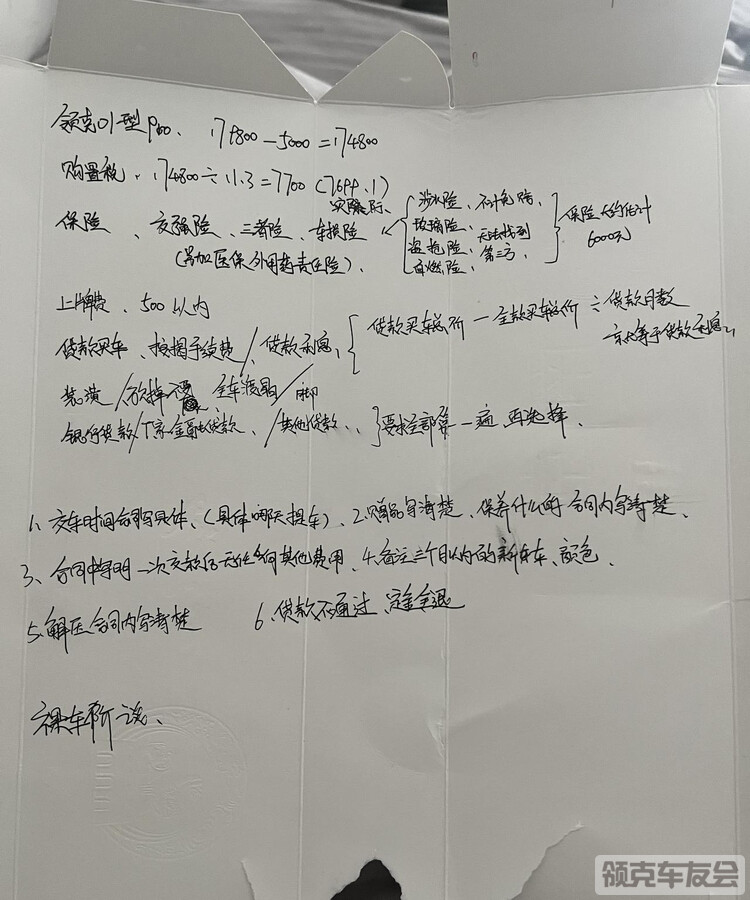 领克01型pro、 179800－5000＝174800
购置税、174800÷11.3＝7700（7699.1）
实际
保险、交强险、三者险、车损险
涉水险、不计免赔、
玻璃险、无法找到
盗抢险、第三方、
自燃险、
保险大约估计
6000元
（另加医保外用药责任险）、
上牌费、500以内
贷款买车、按揭手续费／、贷款利息、
贷款买车总价－全款买车总价÷贷款月数
就等于贷款利息
装潢／砍掉 全车液晶／脚
银行贷款／厂家金融贷款、／其他贷款、、}要求全部算一遍、再选择、
1、交车时间合同写具体、（具体哪天提车）、2、赠品写清楚、保养什么的合同内写清楚、
3、合同中写明一次交款后无任何其他费用、4、备注三个月以内的新车、颜色、
5、解压合同内写清楚 6、贷款不通过、定金全退
裸车价谈、
领克车友会